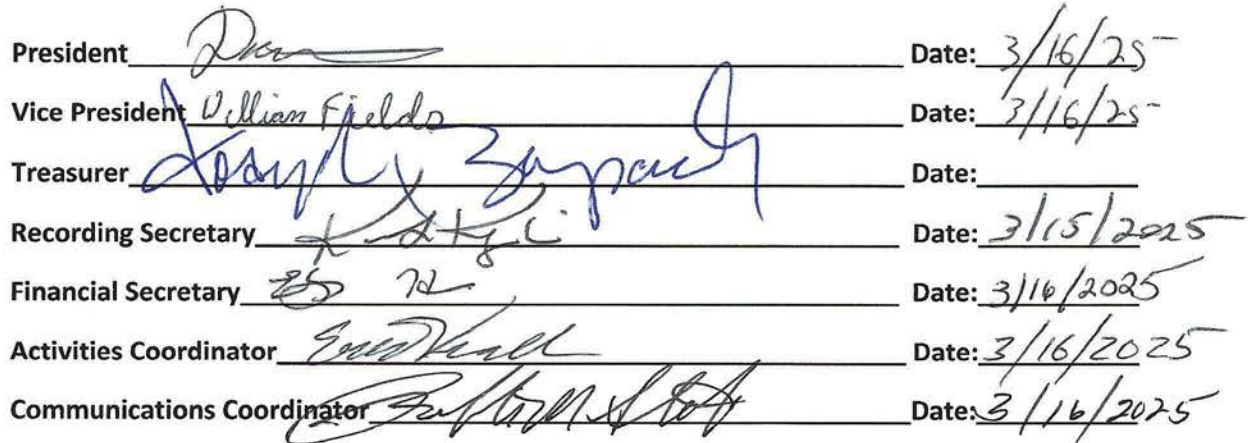 President Date: 3/16/25
Vice President William Fields Date: 3/16/25
Treasurer Joseph Date:
Recording Secretary Date: 3/15/2025
Financial Secretary Date: 3/16/2025
Activities Coordinator Date: 3/16/2025
Communications Coordinator Date: 3/16/2025